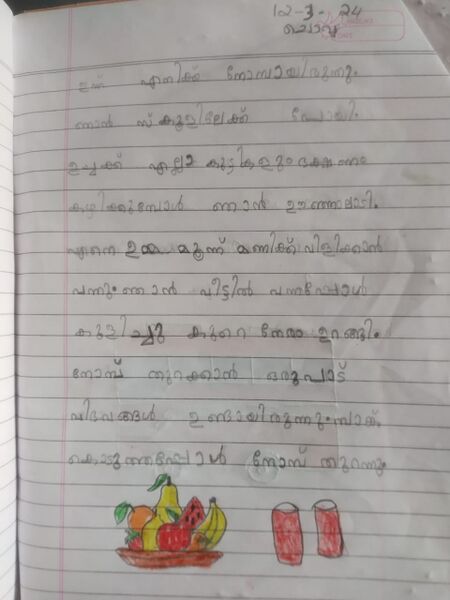 12-3-24
ചൊവ്വ
ഇന്ന് എനിക്ക് നോമ്പായിരുന്നു.
ഞാൻ സ്കൂളിലേക്ക് പോയി.
ഉച്ചക്ക് എല്ലാ കുട്ടികളും ഭക്ഷണം
കഴിക്കുമ്പോൾ ഞാൻ ഊഞ്ഞാലാടി.
എന്നെ ഉമ്മ മൂന്ന് മണിക്ക് വിളിക്കാൻ
വന്നു. ഞാൻ വീട്ടിൽ വന്നപ്പോൾ
കുളിച്ചു കുറെ നേരം ഉറങ്ങി.
നോമ്പ് തുറക്കാൻ ഒരുപാട്
വിഭവങ്ങൾ ഉണ്ടായിരുന്നു. ബാങ്ക്
കൊടുത്തപ്പോൾ നോമ്പ് തുറന്നു.